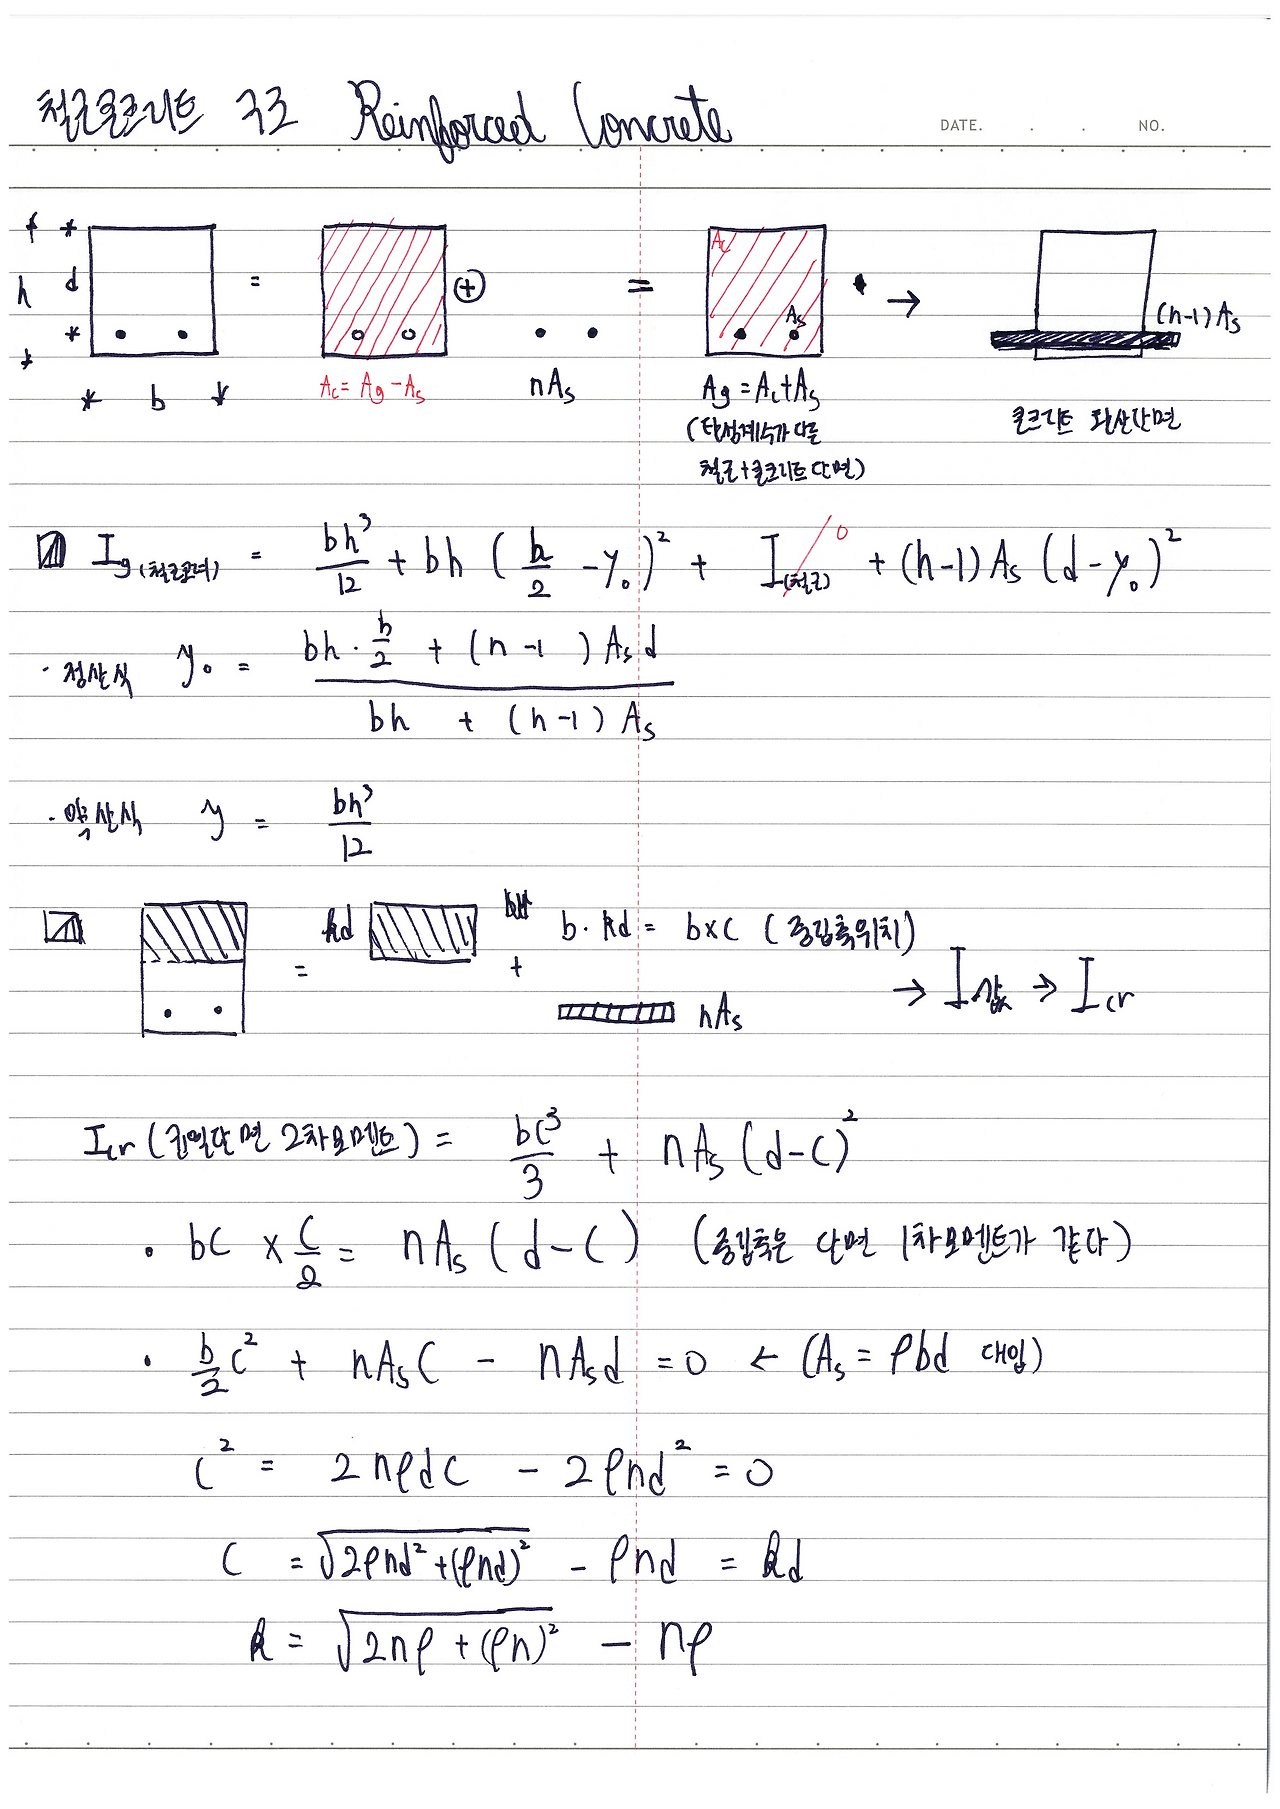 철근콘크리트 구조 Reinforced Concrete
DATE. . . NO.
h d b = ⊕ = → (n-1)As
Ac = Ag - As nAs Ac As Ag = Ac + As 콘크리트 환산단면
(탄성계수가 다른
철근+콘크리트 단면)
Ig (철근고려) = bh³/12 + bh (h/2 - y₀)² + I(철근) 0 + (n-1) As (d - y₀)²
· 정산식 y₀ = (bh · h/2 + (n-1) As d) / (bh + (n-1) As)
· 약산식 y = bh³/12
= kd + b · kd = b×c (중립축위치)
nAs → I값 → Icr
Icr (균열단면 2차모멘트) = bc³/3 + nAs (d-c)²
· bc × c/2 = nAs (d-c) (중립축은 단면 1차모멘트가 같다)
· b/2 c² + nAsc - nAsd = 0 ← (As = ρbd 대입)
c² = 2nρdc - 2ρnd² = 0
c = √(2ρnd² + (ρnd)²) - ρnd = kd
k = √(2nρ + (ρn)²) - nρ